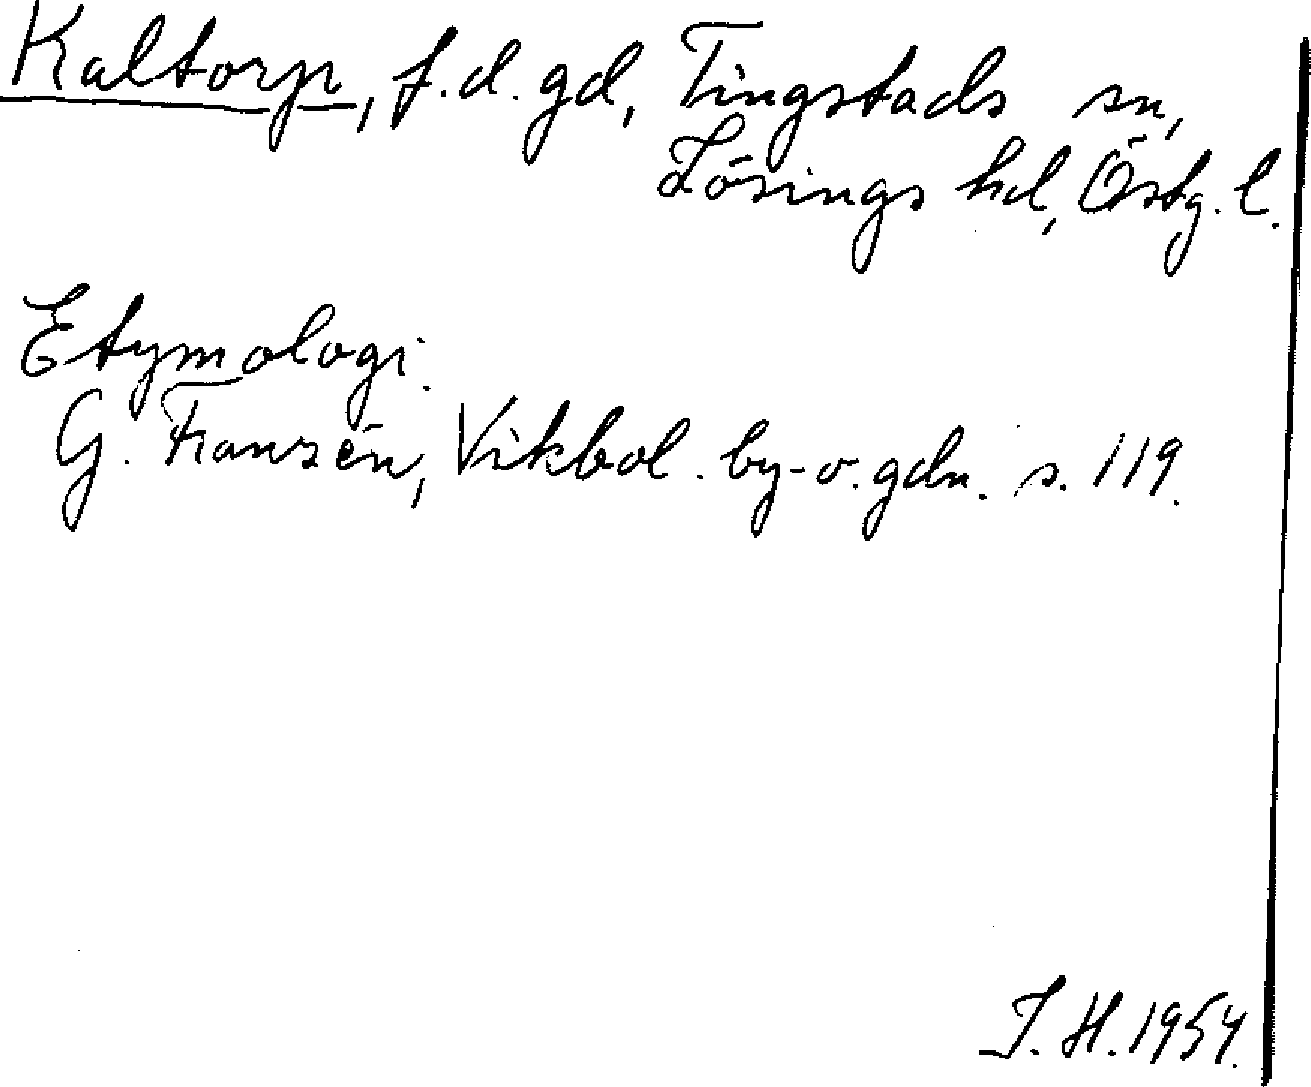 Kaltorp, f.d. gd, Tingstads sn,
Lösings hd, Östg. l.
Etymologi.
G. Franzén, Vikbol. by- o. gdn. s. 119.
J. H. 1954.